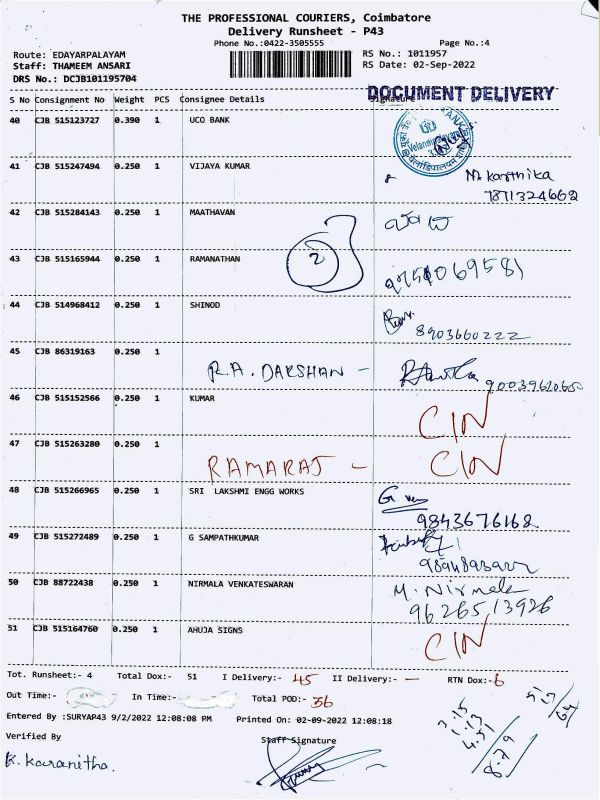 THE PROFESSIONAL COURIERS, Coimbatore
Delivery Runsheet - P43
Phone No.:0422-3505555 Page No.:4
Route: EDAYARPALAYAM RS No.: 1011957
Staff: THAMEEM ANSARI RS Date: 02-Sep-2022
DRS No.: DCJB101195704
DOCUMENT DELIVERY
S No Consignment No Weight PCS Consignee Details Signature
40 CJB 515123727 0.390 1 UCO BANK
41 CJB 515247494 0.250 1 VIJAYA KUMAR
Karthika
7871324662
42 CJB 515284143 0.250 1 MAATHAVAN
43 CJB 515165944 0.250 1 RAMANATHAN 2
9751069581
44 CJB 514968412 0.250 1 SHINOD
8903660222
45 CJB 86319163 0.250 1
R.A. DARSHAN -
46 CJB 515152566 0.250 1 KUMAR CIN
47 CJB 515263280 0.250 1
RAMARAJ - CIN
48 CJB 515266965 0.250 1 SRI LAKSHMI ENGG WORKS
9843676168
49 CJB 515272489 0.250 1 G SAMPATHKUMAR
50 CJB 88722438 0.250 1 NIRMALA VENKATESWARAN M. Nirmala
9626513926
51 CJB 515164760 0.250 1 AHUJA SIGNS CIN
Tot. Runsheet:- 4 Total Dox:- 51 I Delivery:- 45 II Delivery:- — RTN Dox:- 6
Out Time:- In Time:- Total POD:- 36
Entered By :SURYAP43 9/2/2022 12:08:08 PM Printed On: 02-09-2022 12:08:18
Verified By Staff Signature
3.15
1.13
4.51
8.79
K. Karanitha.